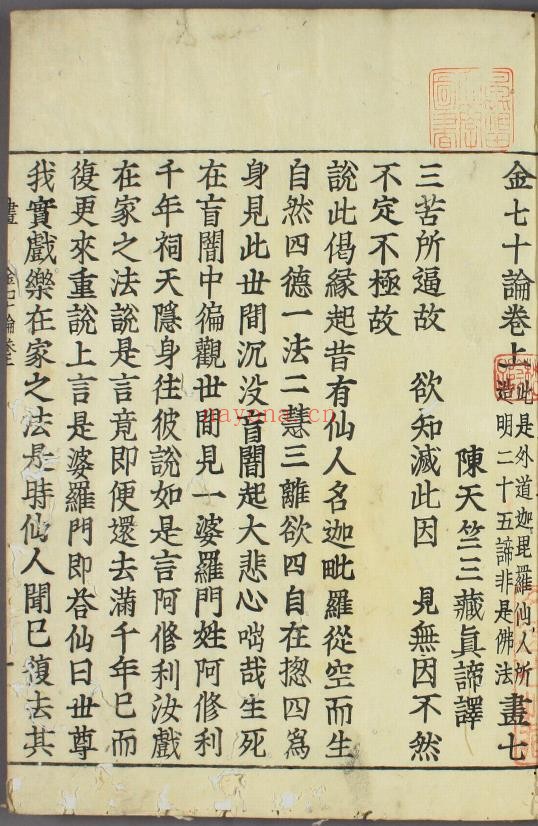 金七十論卷上 此是外道迦毘羅仙人所造明二十五諦非是佛法 畫七
陳天竺三藏眞諦譯
三苦所逼故 欲知滅此因 見無因不然
不定不極故
說此偈緣起昔有仙人名迦毗羅從空而生
自然四德一法二慧三離欲四自在揔四為
身見此世間沉没盲闇起大悲心咄哉生死
在盲闇中徧觀世間見一婆羅門姓阿修利
千年祠天隱身往彼說如是言阿修利汝戲
在家之法說是言竟即便還去滿千年已而
復更來重說上言是婆羅門即荅仙曰世尊
我實戲樂在家之法是時仙人聞已復去其
畫 金七十論卷上
nayona.cn